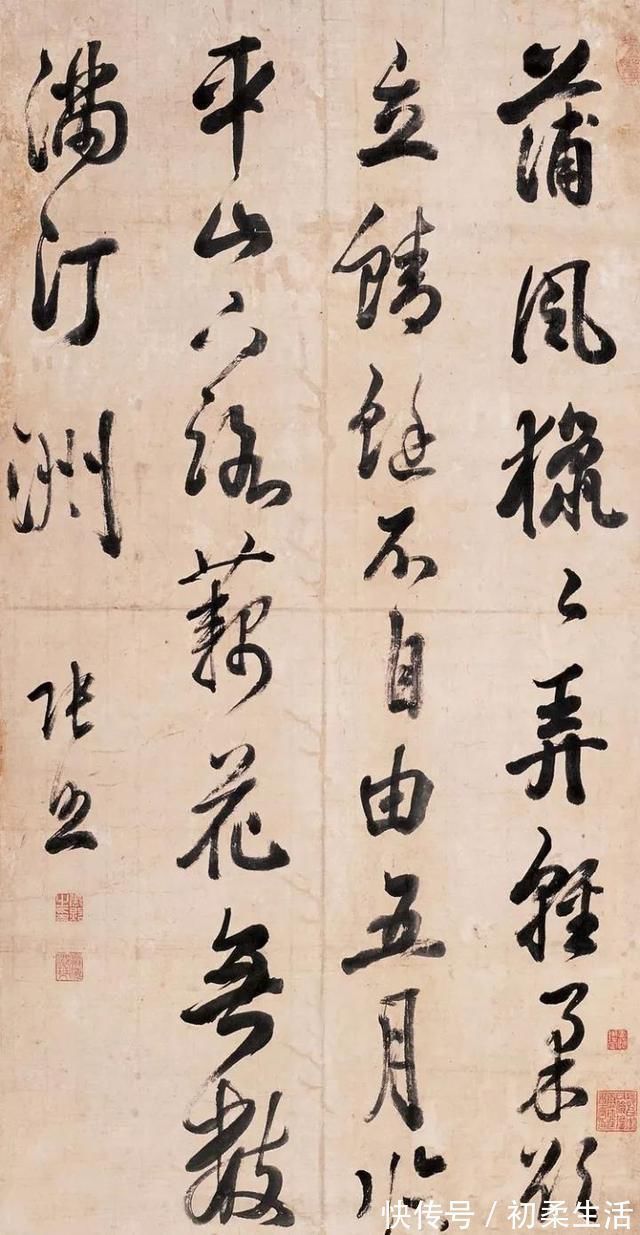 蒲風獵〻弄輕柔欲
立蜻蜓不自由五月臨
平山下路藕花無數
滿汀洲
張照
快传号/初柔生活